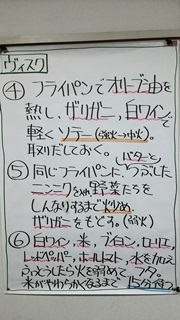 ヴィスク
④ フライパンでオリーブ油を
熱し、ザリガニ、白ワインで
軽くソテー(強火→中火)。
取りだしておく。
バターと
⑤ 同じフライパンに、つぶした
ニンニクをいれ野菜たちを
しんなりするまで炒め、
ザリガニをもどす。(弱火)
⑥ 白ワイン、米、ブイヨン、ローリエ、
レッドペッパー、ホールトマト、水を加え
ふっとうしたら火を弱めてフタ。
米がやわらかくなるまで 15分待つ